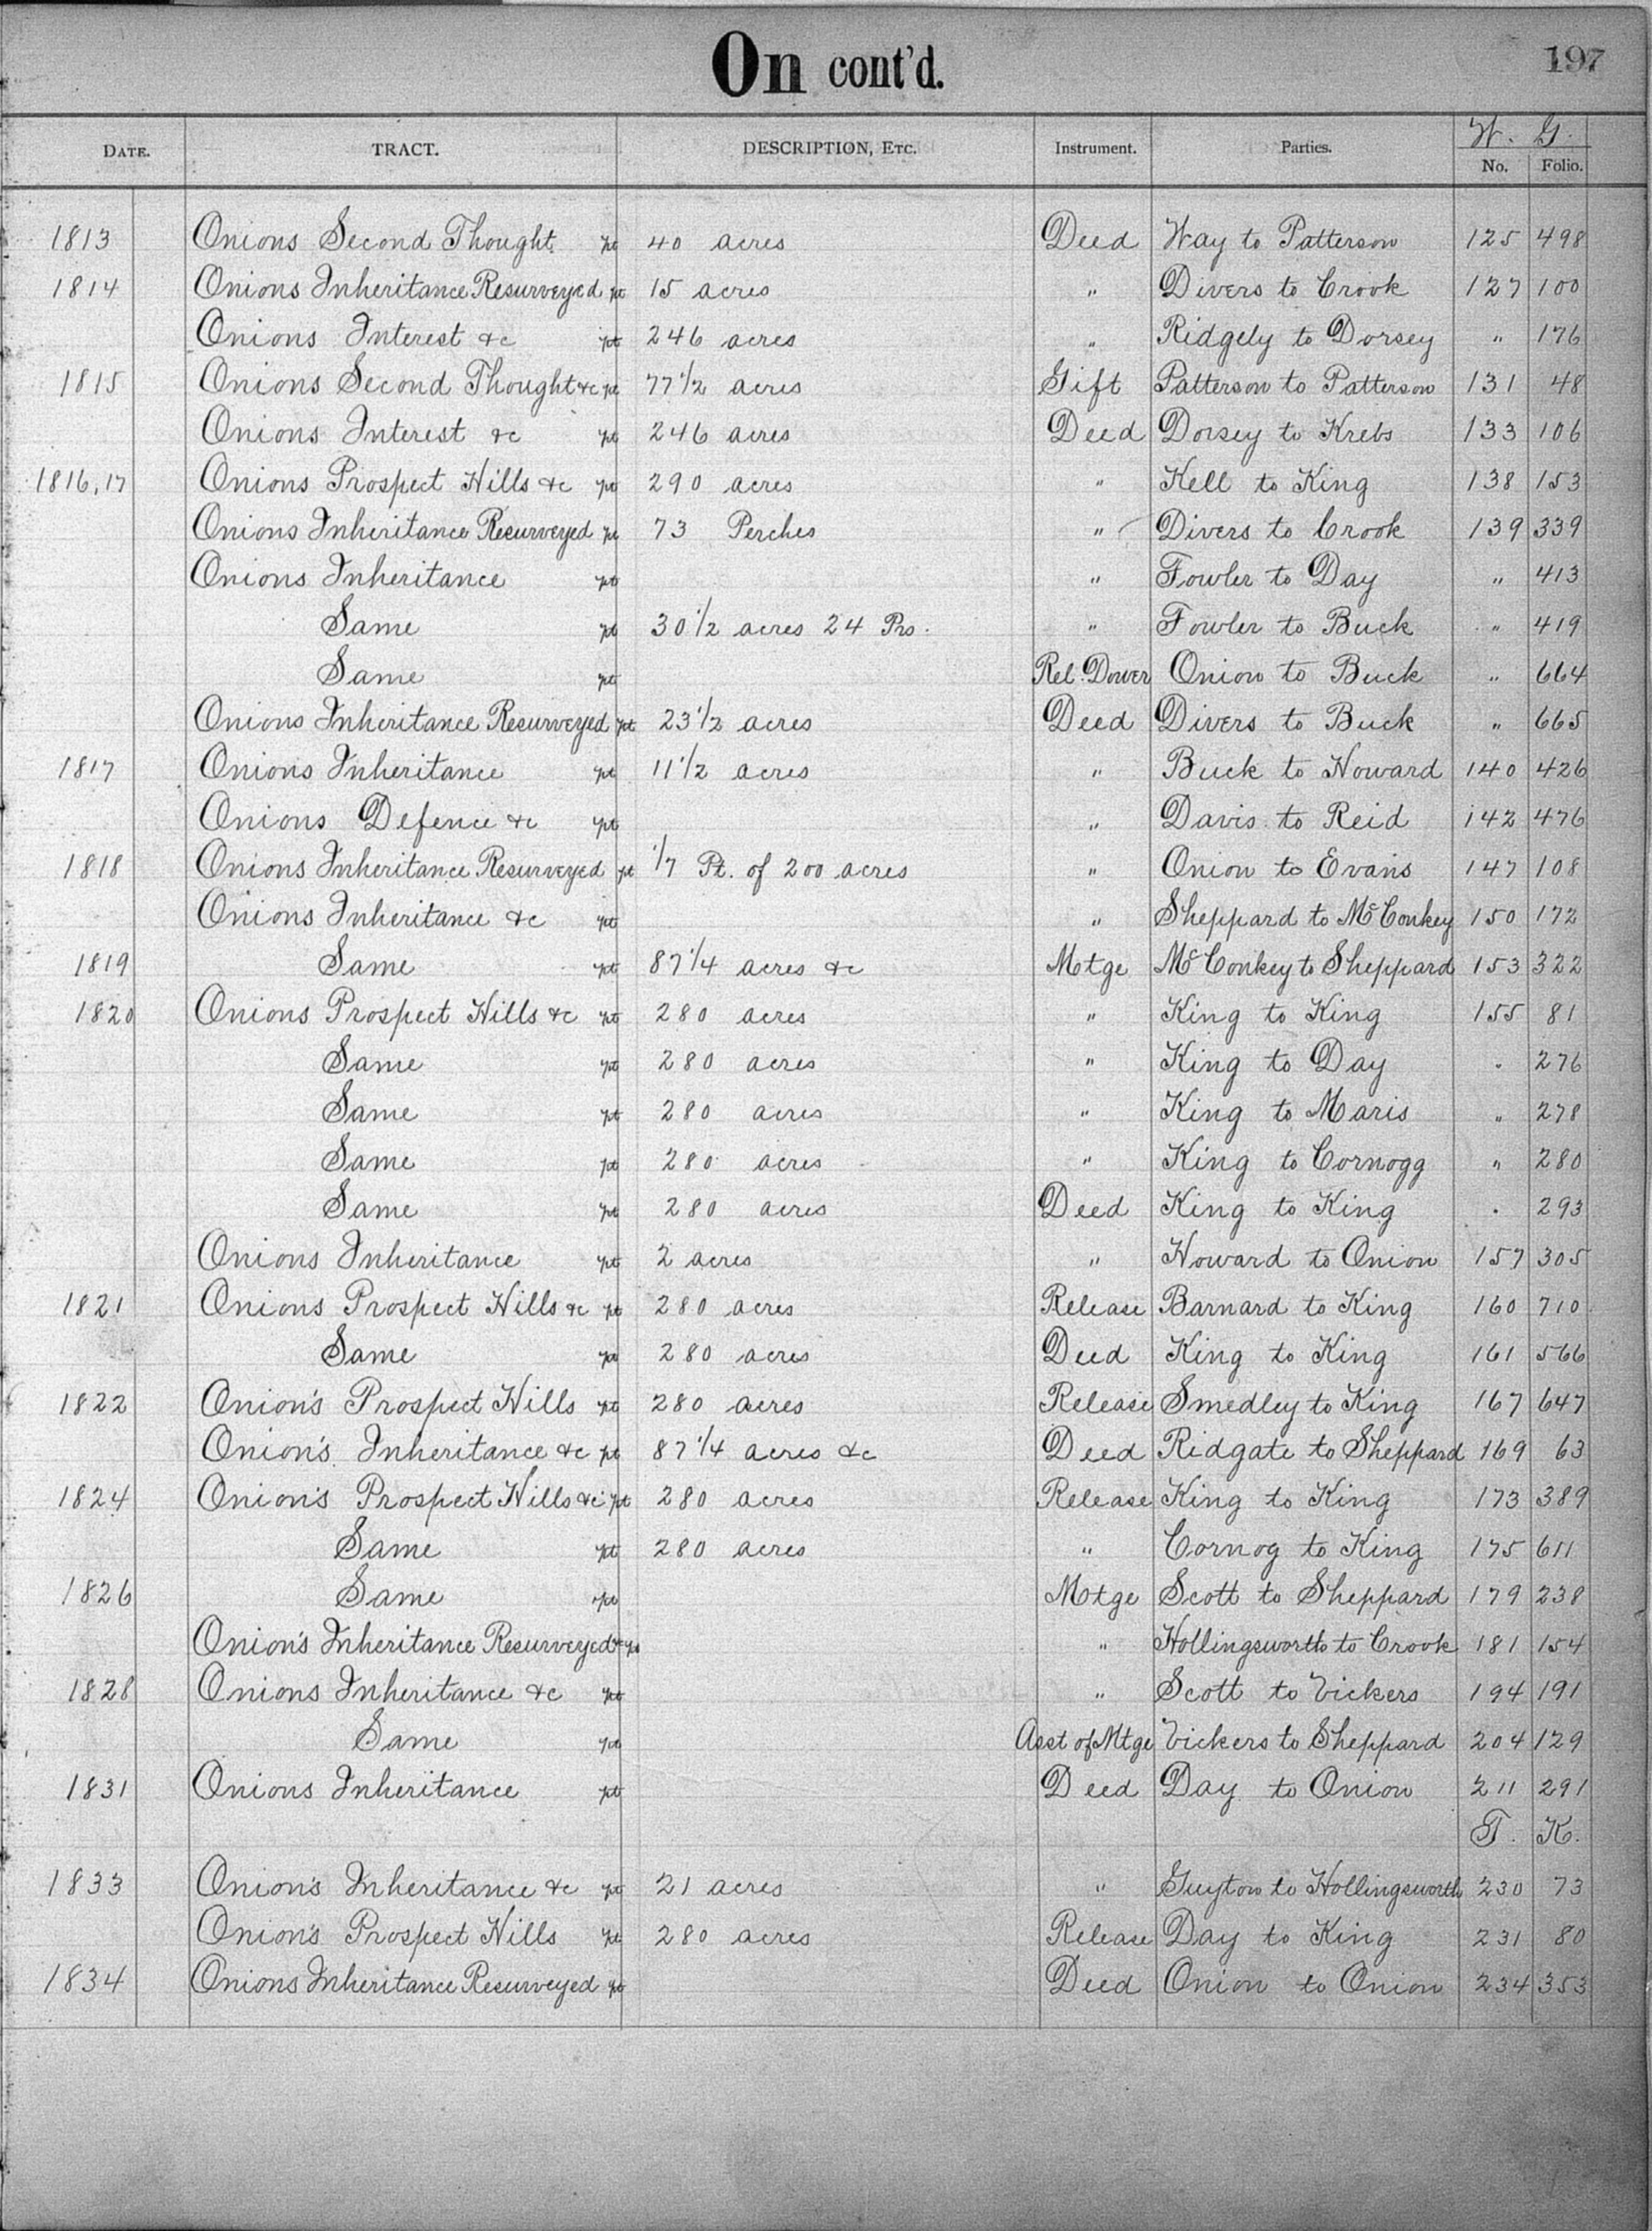 On cont'd.
197
DATE. TRACT. DESCRIPTION, ETC. Instrument. Parties. W. G. No. Folio.
1813 Onions Second Thought pt 40 acres Deed Way to Patterson 125 498
1814 Onions Inheritance Resurveyed pt 15 acres " Divers to Crook 127 100
Onions Interest &c pt 246 acres " Ridgely to Dorsey " 176
1815 Onions Second Thought &c pt 77 1/2 acres Gift Patterson to Patterson 131 48
Onions Interest &c pt 246 acres Deed Dorsey to Krebs 133 106
1816,17 Onions Prospect Hills &c pt 290 acres " Kell to King 138 153
Onions Inheritance Resurveyed pt 73 Perches " Divers to Crook 139 339
Onions Inheritance pt " Fowler to Day " 413
Same pt 30 1/2 acres 24 Prs. " Fowler to Buck " 419
Same pt Rel. Dower Onion to Buck " 664
Onions Inheritance Resurveyed pt 23 1/2 acres Deed Divers to Buck " 665
1817 Onions Inheritance pt 11 1/2 acres " Buck to Howard 140 426
Onions Defence &c pt " Davis to Reid 142 476
1818 Onions Inheritance Resurveyed pt 1/7 Pt. of 200 acres " Onion to Evans 147 108
Onions Inheritance &c pt " Sheppard to McConkey 150 172
1819 Same pt 87 1/4 acres &c Motge McConkey to Sheppard 153 322
1820 Onions Prospect Hills &c pt 280 acres " King to King 155 81
Same pt 280 acres " King to Day " 276
Same pt 280 acres " King to Maris " 278
Same pt 280 acres " King to Cornogg " 280
Same pt 280 acres Deed King to King " 293
Onions Inheritance pt 2 acres " Howard to Onion 157 305
1821 Onions Prospect Hills &c pt 280 acres Release Barnard to King 160 710
Same pt 280 acres Deed King to King 161 566
1822 Onion's Prospect Hills pt 280 acres Release Smedley to King 167 647
Onion's Inheritance &c pt 87 1/4 acres &c Deed Ridgate to Sheppard 169 63
1824 Onion's Prospect Hills &c pt 280 acres Release King to King 173 389
Same pt 280 acres " Cornog to King 175 611
1826 Same pt Motge Scott to Sheppard 179 238
Onion's Inheritance Resurveyed &c pt " Hollingsworth to Crook 181 154
1828 Onions Inheritance &c pt " Scott to Vickers 194 191
Same pt Asst of Mtge Vickers to Sheppard 204 129
1831 Onions Inheritance pt Deed Day to Onion 211 291
T. K.
1833 Onion's Inheritance &c pt 21 acres " Guyton to Hollingsworth 230 73
Onion's Prospect Hills pt 280 acres Release Day to King 231 80
1834 Onions Inheritance Resurveyed pt Deed Onion to Onion 234 353